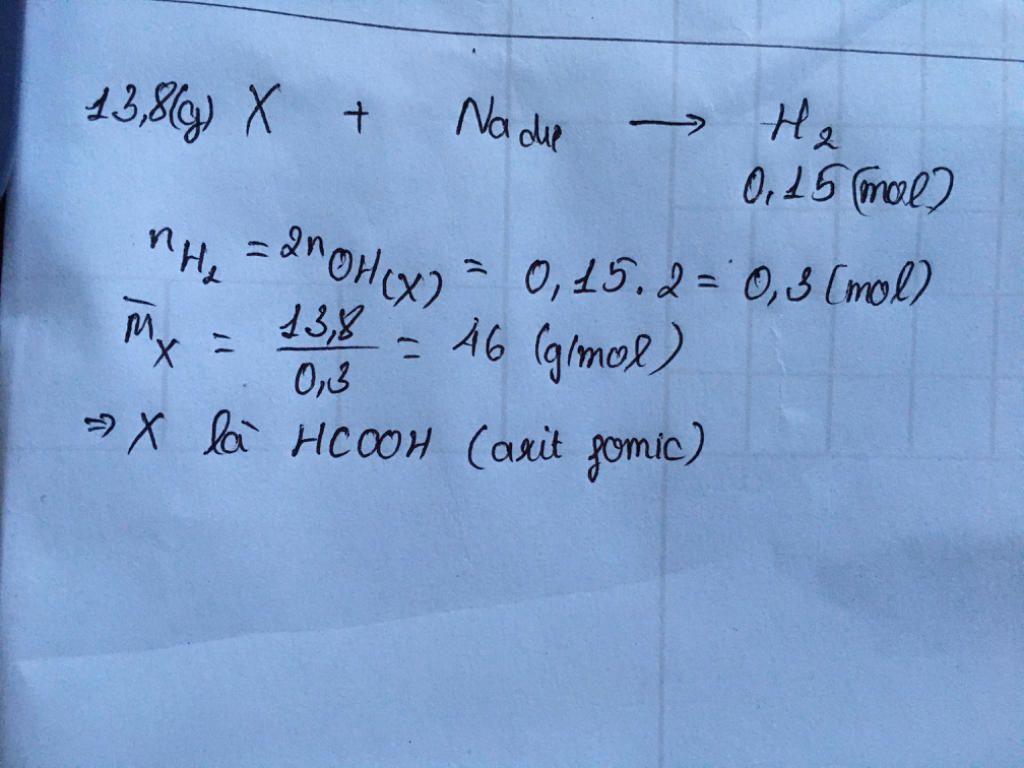 13,8(g) X + Na dư → H₂
0,15 (mol)
n_H₂ = 2n_OH(X) = 0,15.2 = 0,3 (mol)
M̄_X = 13,8/0,3 = 46 (g/mol)
⇒ X là HCOOH (axit fomic)